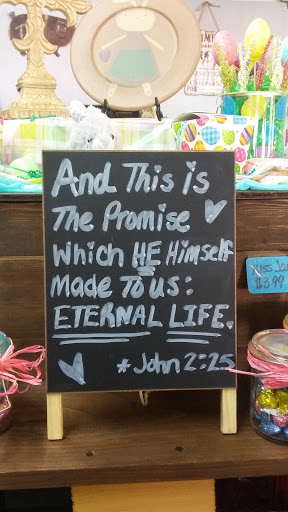 And This is
The Promise
Which HE Himself
Made To us:
ETERNAL LIFE.
*John 2:25
$3.99